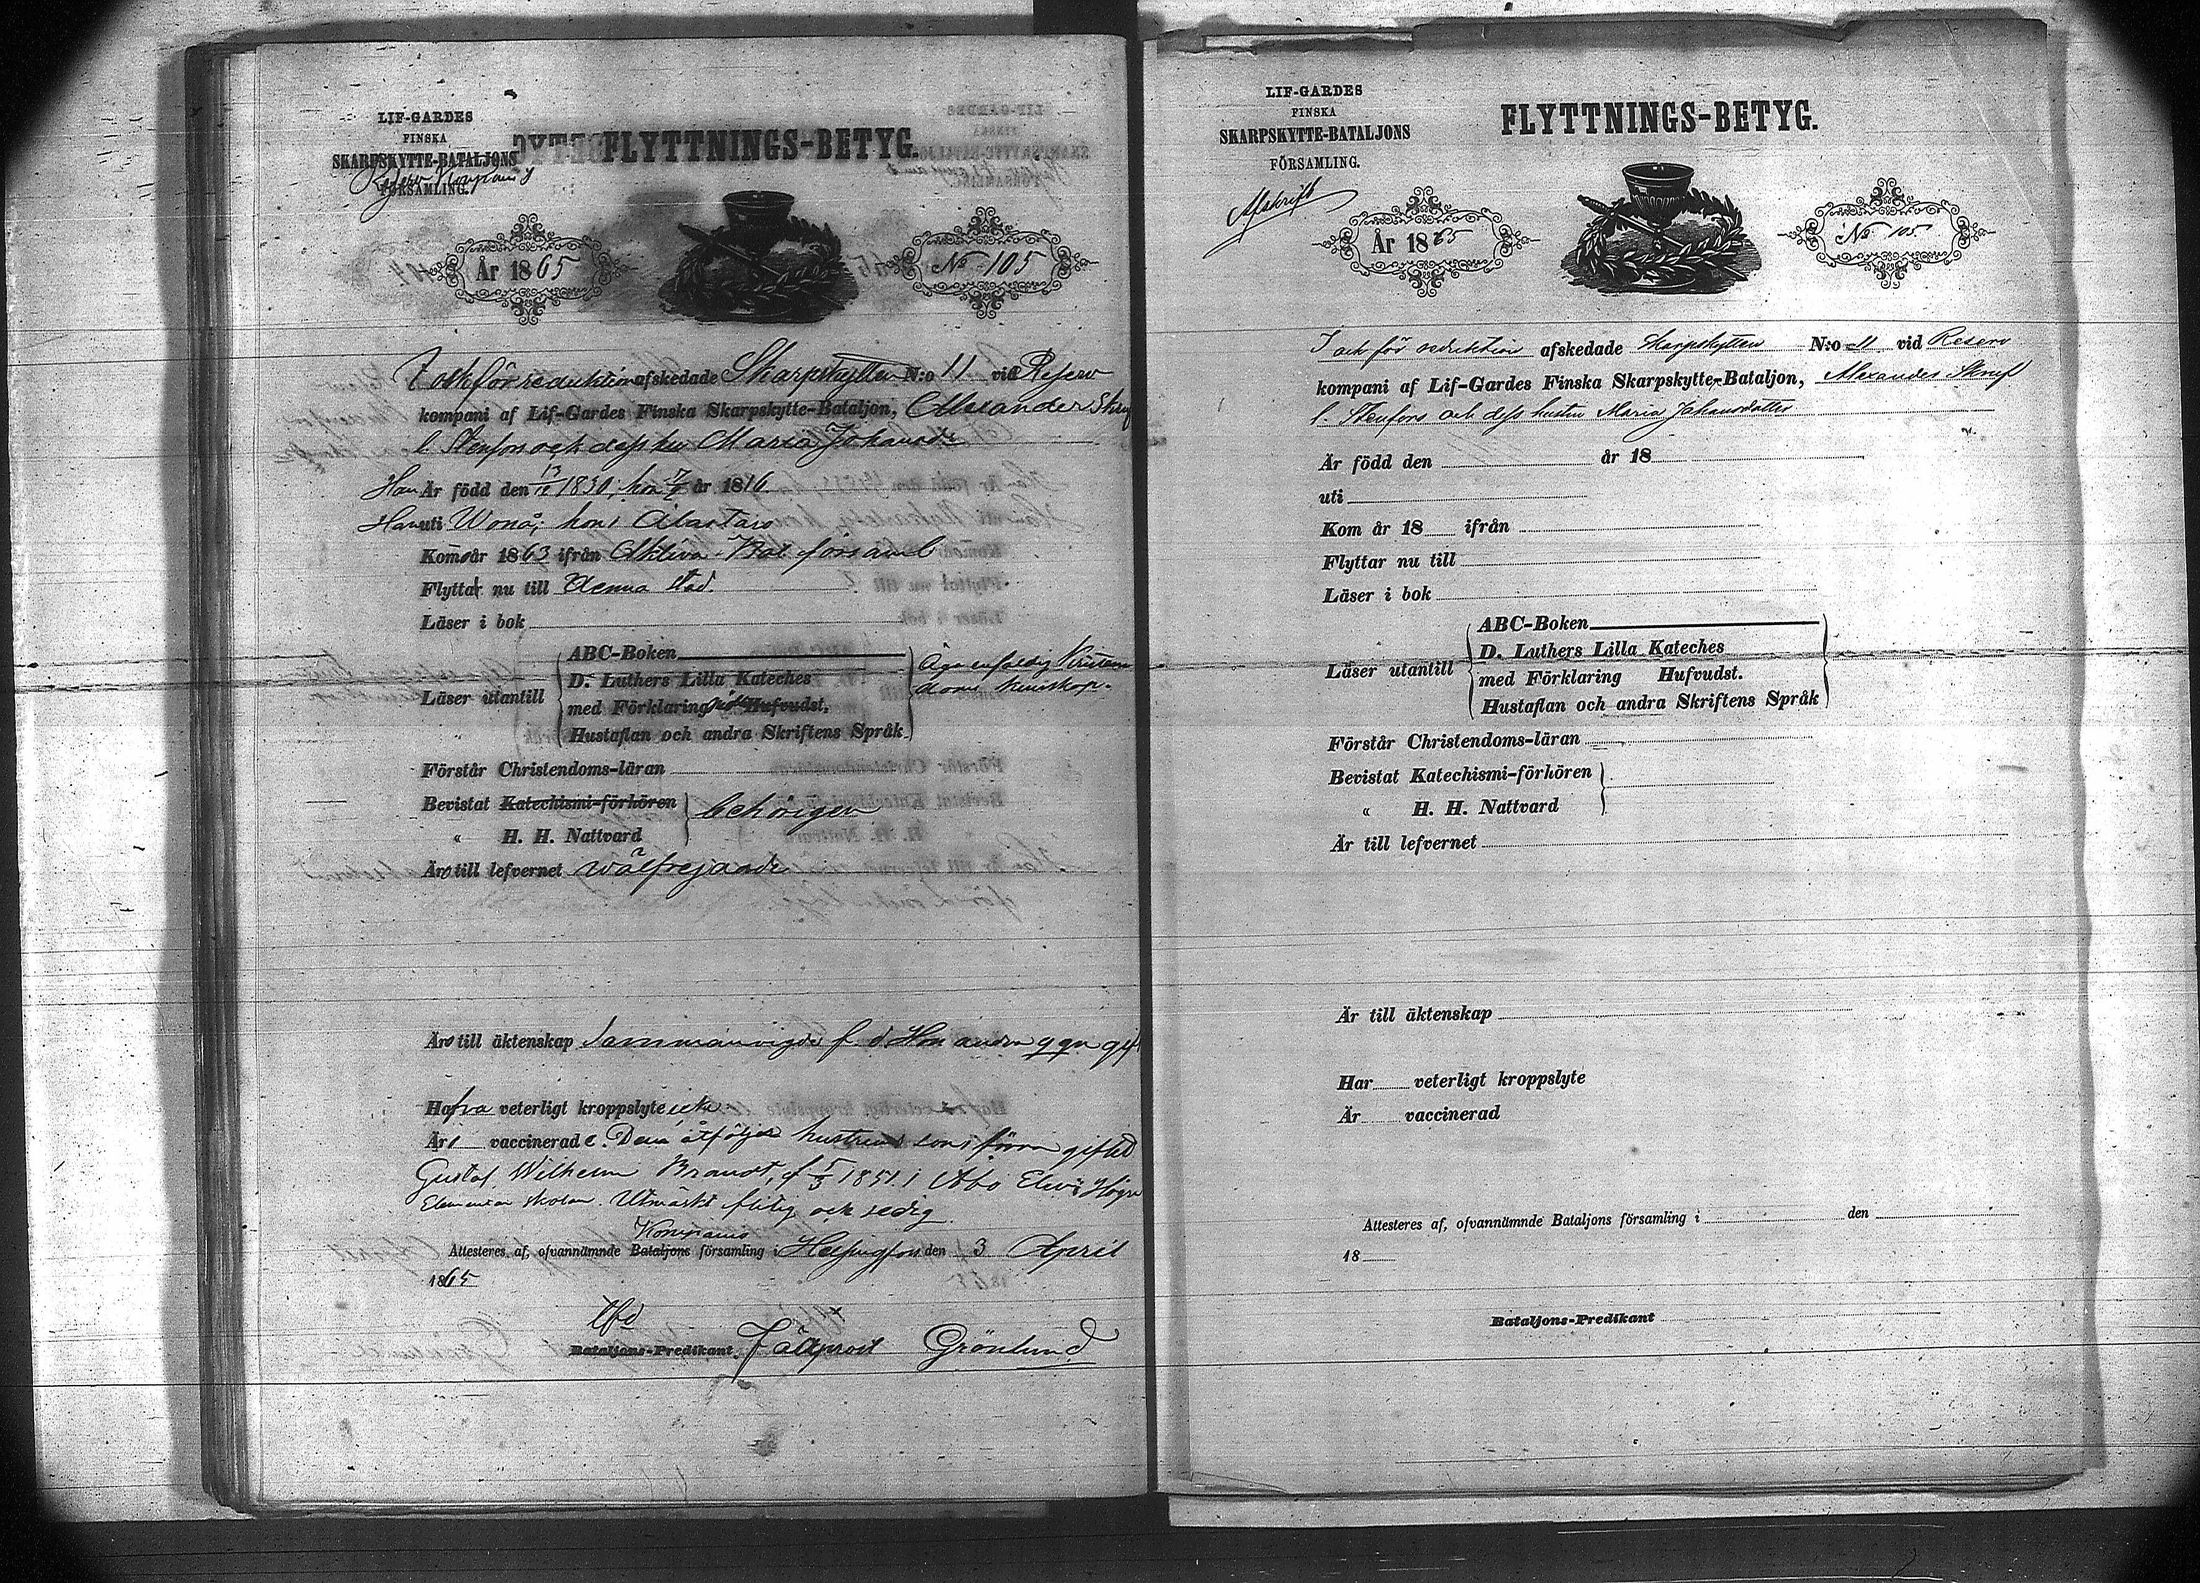 LIF-GARDES
FINSKA
SKARPSKYTTE-BATALJONS
Reserv Kompani
FÖRSAMLING.
FLYTTNINGS-BETYG.
År 1865
No 105
I och för reduktion afskedade Skarpskytten N:o 11 vid Reserv
kompani af Lif-Gardes Finska Skarpskytte-Bataljon, Alexander Skruf
l. Stenfors och dess hu Maria Johansdr
Han Är född den 13/12 1830, hon 7/7 år 1816.
Han uti Wånå; hon i Alastaro
Kommo år 1863 ifrån Aktiva Bat. församl
Flytta nu till denna stad.
Läser i bok
Läser utantill
ABC-Boken
D. Luthers Lilla Kateches
med Förklaring Hufvudst.
Hustaflan och andra Skriftens Språk
Äga enfaldig Kristen
doms kunskap.
Förstår Christendoms-läran
Bevistat Katechismi-förhören
" H. H. Nattvard
behörigen
Äro till lefvernet wälfrejdade
Äro till äktenskap Sammanvigde f. d. Hon andra ggn gift
Hafva veterligt kroppslyte icke
Är vaccinerade. Dem åtföljer hustruns son i förra giftet
Gustaf Wilhelm Brandt, f 5/3 1851 i Åbo Elev i Högre
Elementar skolan. Utmärkt flitig och sedig.
Kompanis
Attesteres af, ofvannämnde Bataljons församling i Helsingfors den 3 April
1865
Bataljons-Predikant. Fältprost Grönlund
LIF-GARDES
FINSKA
SKARPSKYTTE-BATALJONS
FÖRSAMLING.
Afskrift
FLYTTNINGS-BETYG.
År 1865
No 105
I och för reduktion afskedade Skarpskytten N:o 11 vid Reserv
kompani af Lif-Gardes Finska Skarpskytte-Bataljon, Alexander Skruf
l. Stenfors och dess hustru Maria Johansdotter
Är född den år 18
uti
Kom år 18 ifrån
Flyttar nu till
Läser i bok
Läser utantill
ABC-Boken
D. Luthers Lilla Kateches
med Förklaring Hufvudst.
Hustaflan och andra Skriftens Språk
Förstår Christendoms-läran
Bevistat Katechismi-förhören
" H. H. Nattvard
Är till lefvernet
Är till äktenskap
Har veterligt kroppslyte
Är vaccinerad
Attesteres af, ofvannämnde Bataljons församling i den
18
Bataljons-Predikant